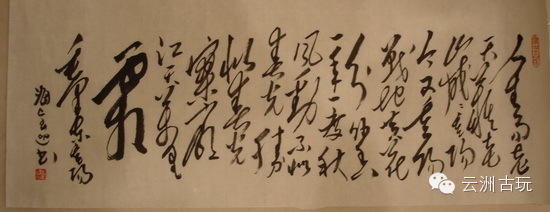 人生易老
天难老
岁岁重阳
今又重阳
战地黄花
分外香
一年一度秋
风劲不似
春光胜
似春光
寥廓
江天万里
霜
重阳
书
云洲古玩